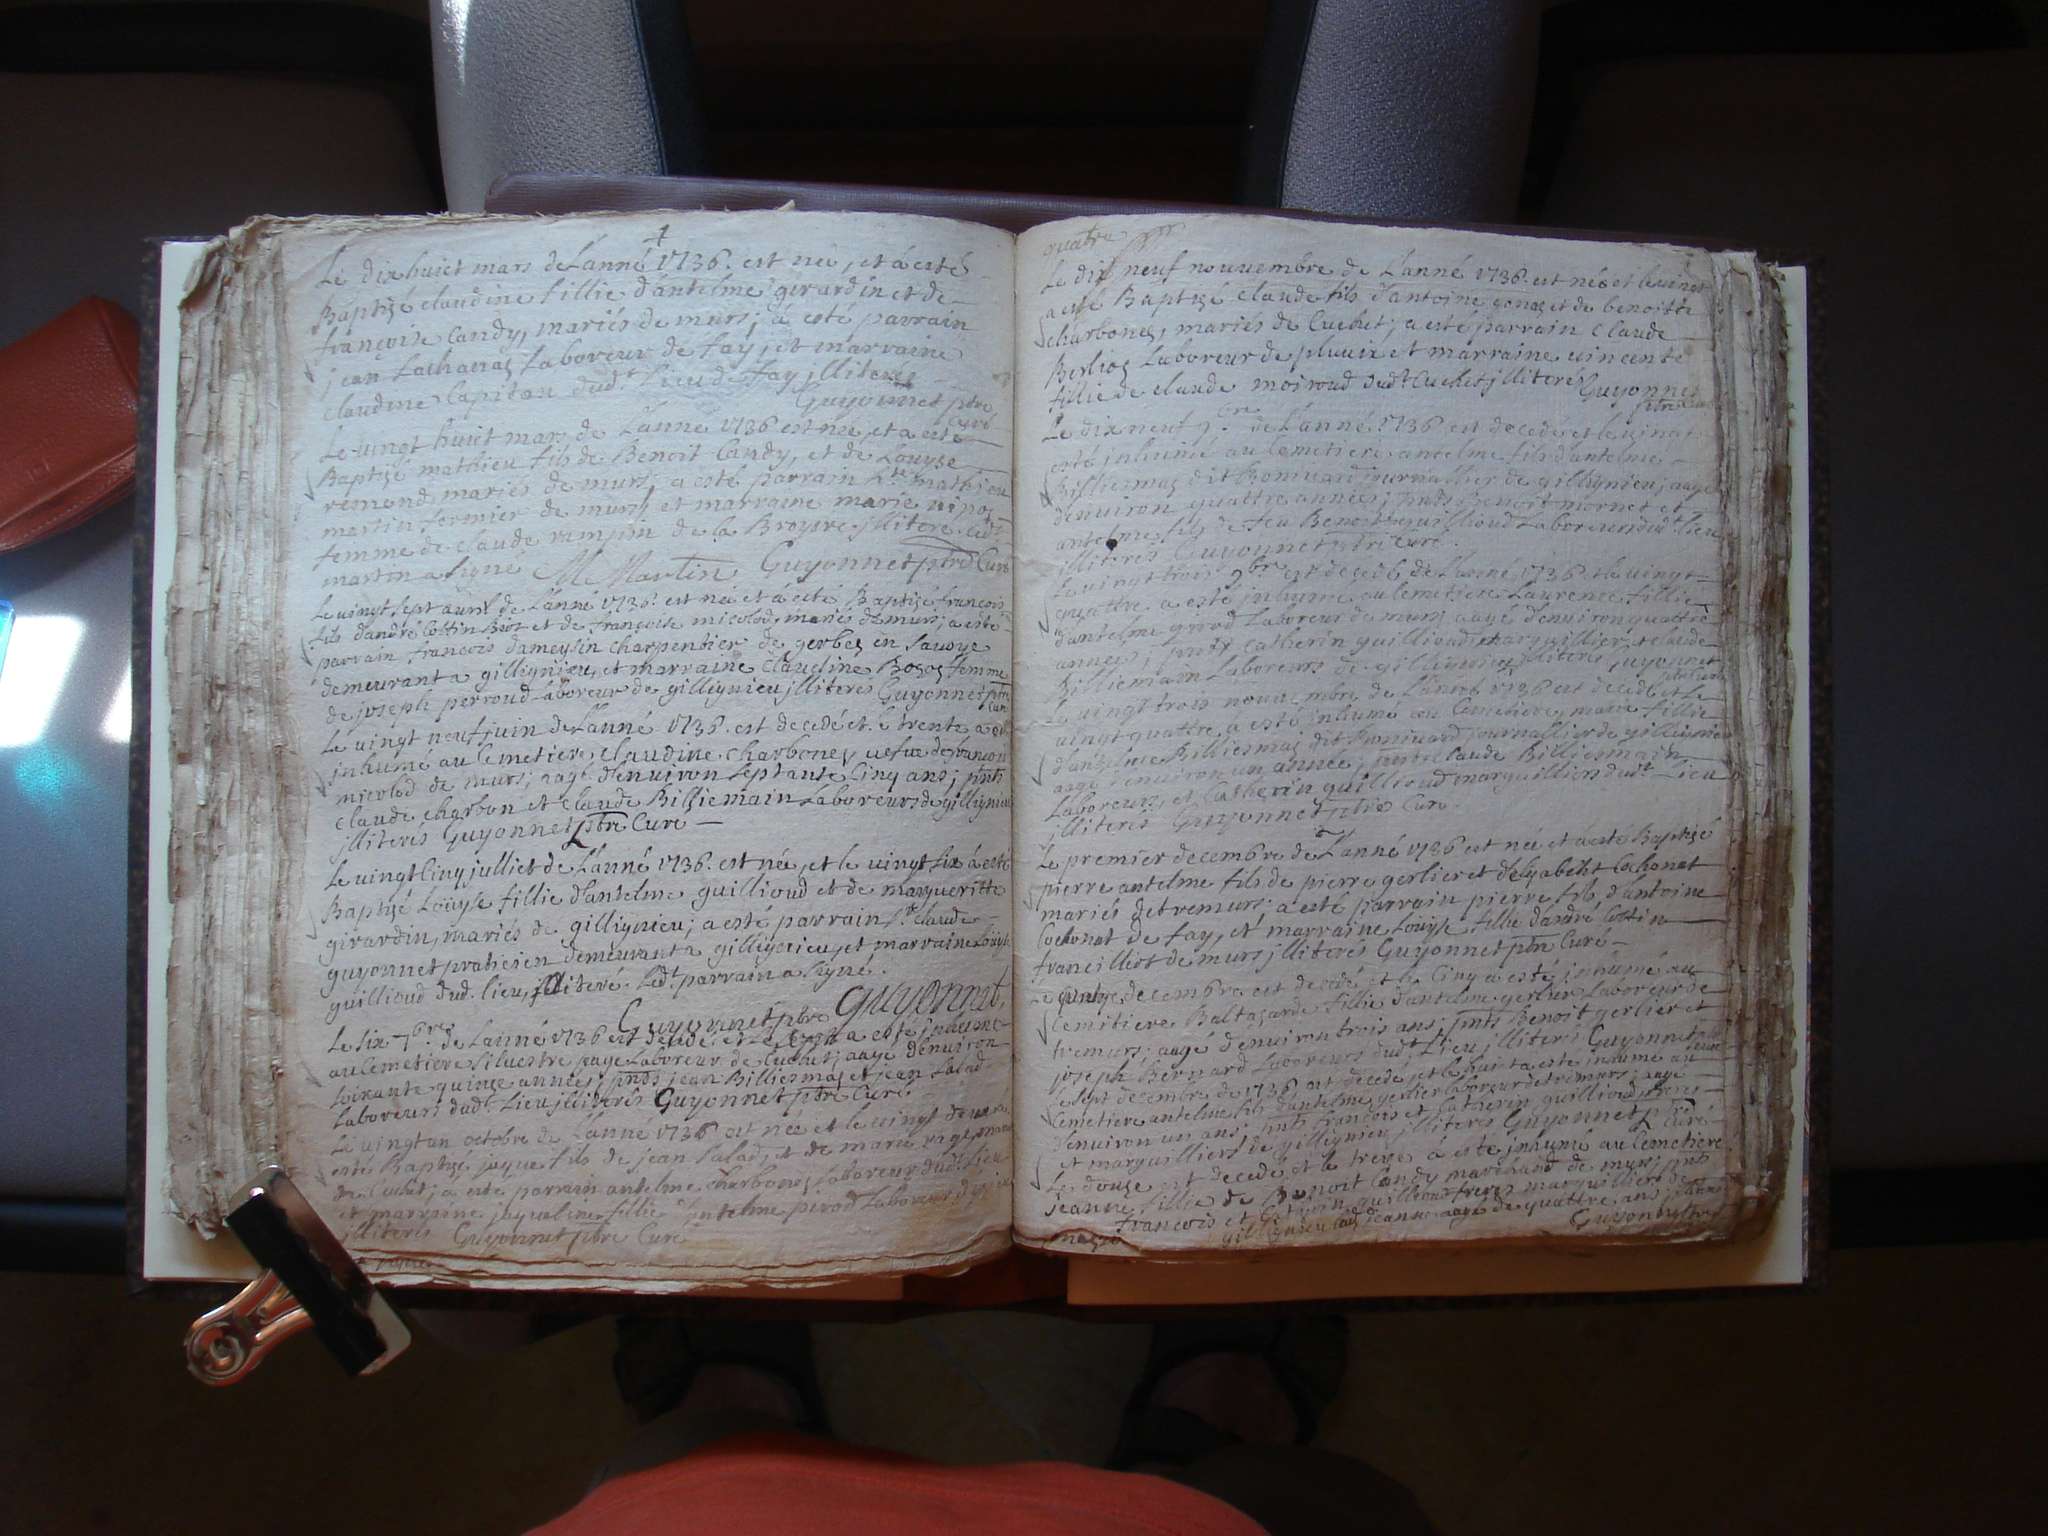 4
Le dix huict mars de Lanné 1736. est née, et á esté
Baptisé claudine fillie dantelme girardin et de
françoise Candy, mariés de murs; á esté parrain
jean Lachanas Laboreur de fay, et marraine
claudine Capitan dud.t Lieu de fay jlliterés
Guyonnet ptre
Curé
Le vingt huict mars de Lanné 1736 est née, et a esté
Baptisé mathieu fils de Benoit Candy, et de Louyse
remond mariés de murs; a esté parrain mathieu
martin fermier de murs et marraine marie
femme de claude de la Broyere jlliteré Led.t
martin a signé M Martin Guyonnet ptre Curé
Le vingt sept avril de Lanné 1736. est née et á esté Baptisé françois
fils dandré Cottin et de françoise micolod, mariés de murs; a esté
parrain françois dameysin charpentier de gerbes en Savoye
demeurant a gillignieu, et marraine claudine Boses femme
de joseph perroud Laboreur de gillignieu jlliteres Guyonnet ptre
Curé
Le vingt neuf juin de Lanné 1736. est decedé et le trente a esté
jnhumé au Cemetiere claudine charbones vefve de françois
micolod de murs; aagé denviron septante Cinq ans; pnts
claude charbon et claude Billiemain Laboreurs de gillignieu
jlliterés Guyonnet ptre Curé
Le vingt Cinq julliet de Lanné 1736. est née, et le vingt six á esté
Baptisé Loüyse fillie dantelme guillioud et de margueritte
girardin, mariés de gillignieu; a esté parrain sr. claude
guyonnet praticien demeurant a gilligenieu, et marraine Loüyse
guillioud dud. lieu, jlliteré. Led.t parrain a signé.
Guyonnet ptre guyonnet
Le six 7bre de Lanné 1736 est decedé, et Le sept a esté jnhumé
au Cemetiere silvestre page Laboreur de Cuchet; aagé denviron
soixante quinze années; pnts jean Billiemas et jean salad
Laboreurs dud.t Lieu jlliterés Guyonnet ptre Curé.
Le vingt un octobre de Lanné 1736 est née et le vingt deux a
esté Baptisé jaque fils de jean salad, et de marie
de Cuchet; a esté parrain antelme charbones Laboreur dud.t Lieu
et marraine jaqueline fillie dantelme pirod Laboreur
jlliterés Guyonnet ptre Curé
quatre
Le dix neuf nouvembre de Lanné 1736. est née et le vingt
a esté Baptisé claude fils dantoine gonas et de benoitte
charbones, mariés de Cuchet; a esté parrain claude
Berlioz Laboreur de pluvix et marraine vincente
fillie de claude moiroud dud.t Cuchet jlliterés Guyonnet
ptre Curé
Le dix neuf 9.bre de Lanné 1736 est decedé et le vingt
esté jnhumé au Cemetiere antelme fils dantelme
Billiemas dit Bonivard journallier de gillignieu; aagé
denviron quattre années; pnts Benoit mornet et
antelme fils de feu Benoit guillioud Laboreurs dud.t Lieu
jlliterés Guyonnet ptre Curé.
Le vingt trois 9bre est decedé de Lanné 1736 et le vingt
quattre a esté jnhumé au Cemetiere Laurence fillie
dantelme girod Laboreur de murs aagé denviron quattre
années; pnts Catherin guillioud marguillier et claude
Billiemain Laboreurs de gillignieu jlliterés guyonnet
ptre Curé
Le vingt trois nouvembre de Lanné 1736 est decedé et Le
vingt quattre a esté jnhumé au Cemetiere, marie fillie
dantelme Billiesmas dit Bonivard journallier de gillignieu
aagé denviron un année; pnts claude Billiesmain
Laboreur, et Catherin guillioud marguilliers dud.t Lieu
jlliterés Guyonnet ptre Curé.
Le premier decembre de Lanné 1736 est née et á esté Baptisé
pierre antelme fils de pierre gerlier et delysabeht Cochonat
mariés de tremurs; a esté parrain pierre fils dantoine
Cochonat de fay, et marraine Loüyse fillie dandré Cottin
francilliot de murs jlliterés Guyonnet ptre Curé
Le decembre est decedé et le Cinq a esté jnhumé au
Cemitiere Baltasarde fillie dantelme gerlier Laboreur de
tremurs; aagé denviron trois ans; pnts Benoit gerlier et
joseph Bernard Laboreurs dud.t Lieu jlliterés Guyonnet ptre
Curé
Le sept decembre de 1736 est decedé, et le huit a esté jnhumé au
Cemetiere antelme fils dantelme gerlier laboreur de tremurs; aagé
denviron un ans; pnts françois et Catherin guillioud freres
et marguilliers de gilligniey jlliterés Guyonnet ptre Curé
Le douze est decedé et le treze á esté jnhumé au Cemetiere
jeanne fillie de Benoit Candy marchand de murs; pnts
françois et Catherin guillioud freres marguilliers de
gilligniey lad. jeanne aagé de quattre ans
Guyonnet ptre